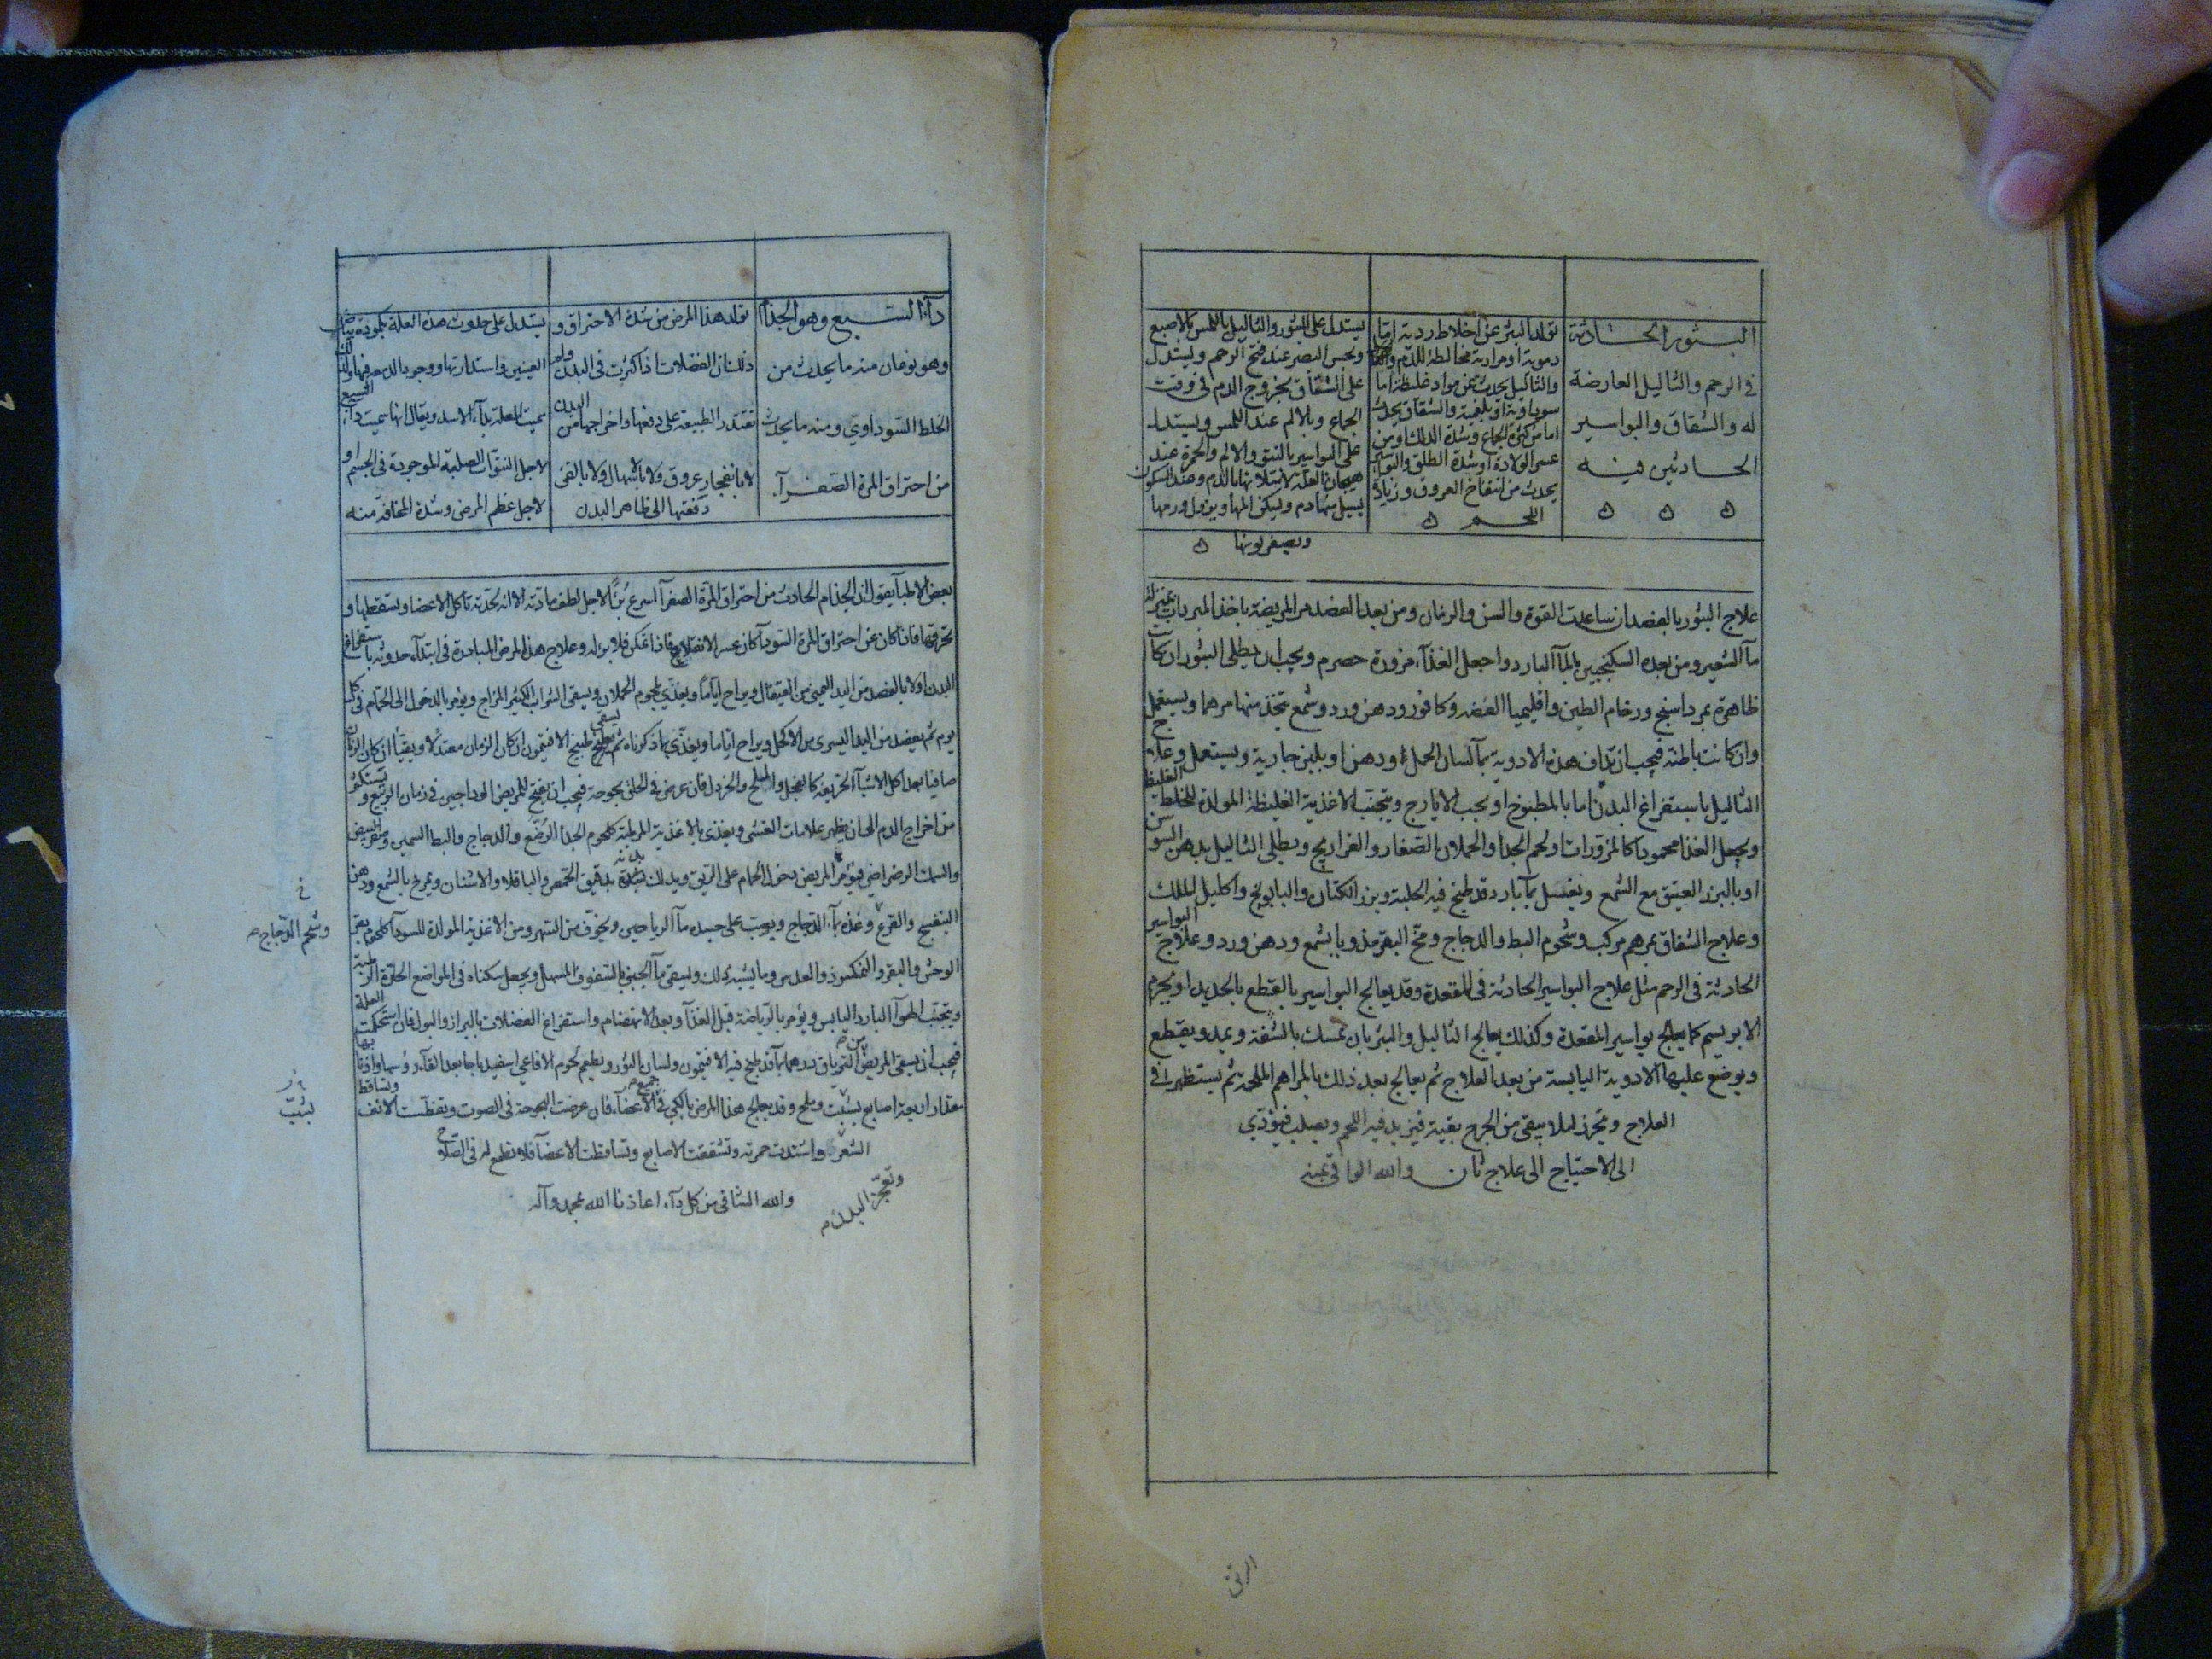 البثور الحادثة
في الرحم والثاليل العارضة
له والشقاق والبواسير
الحادثين فيه
تولد البثر عن اخلاط ردية اما
دموية او مرارية مخالطة للدم
والثاليل يحدث عن مواد غليظة اما
سوداوية او بلغمية والشقاق يحدث
اما من كثرة الجماع وشدة الدلك او من
عسر الولادة او شدة الطلق والبواسير
يحدث من انتفاخ العروق وزيادة
اللحم
يستدل على البثور والثاليل باللمس بالاصبع
وبحس البصر عند فتح الرحم ويستدل
على الشقاق بخروج الدم في وقت
الجماع وبالالم عند اللمس ويستدل
على البواسير بالنتو والالم والحمرة عند
هيجان العلة لامتلائها بالدم وعند السكون
يسيل منها دم ويسكن المها ويزول ورمها
ويصفر لونها
علاج البثور بالفصد ان ساعدت القوة والسن والزمان ومن بعد الفصد مر المريضة باخذ المبردات بمنزلة
مآ الشعير ومن بعده السكنجبين بالمآ البارد واجعل الغذآء مزورة حصرم ويجب ان يطلى البثور ان كانت
ظاهرة بمرداسنج ورخام الطين واقليميا الفضة وكافور ودهن ورد وشمع يتخذ منها مرهما ويستعمل
وان كانت باطنة فيجب ان تداف هذه الادوية بمآ لسان الحمل او دهن او بلبن جارية ويستعمل وعلاج
الثاليل باستفراغ البدن اما بالمطبوخ او بحب الايارج ويتجنب الاغذية الغليظة المولدة للخلط الغليظ
ويجعل الغذا محمودا كالمزورات او لحم الجدا والحملان الصغار والفراريج ويطلى الثاليل بدهن السوسن
او بالبزر العتيق مع الشمع ويغسل بمآ بارد قد طبخ فيه الحلبة وبزر الكتان والبابونج واكليل الملك
وعلاج الشقاق بمرهم مركب وشحوم البط والدجاج ومخ البقر مذوبا بشمع ودهن ورد وعلاج البواسير
الحادثة في الرحم مثل علاج البواسير الحادثة في المقعدة وقد يعالج البواسير بالقطع بالحديد او بحزم
الابريسم كما يعالج بواسير المقعدة وكذلك يعالج الثاليل والبثر بان تمسك بالشفة ويمد ويقطع
ويوضع عليها الادوية اليابسة من بعد العلاج ثم يعالج بعد ذلك بالمراهم الملحمة ثم يستظهر في
العلاج ويتحرز لئلا يبقى من الجرح بقية فيزيد فيه اللحم ويصلب فيؤدي
الى الاحتياج الى علاج ثان والله الواقي بمنه
الرتق
دآء السبع وهو الجذام
وهو نوعان منه ما يحدث من
الخلط السوداوي ومنه ما يحدث
من احتراق المرة الصفرآء
تولد هذا المرض من شدة الاحتراق و
ذلك ان الفضلات اذا كثرت في البدن ولم
تقتدر الطبيعة على دفعها واخراجها من البدن
لا بانفجار عروق ولا باسهال ولا بالقئ
دفعتها الى ظاهر البدن
يستدل على حدوث هذه العلة بكمودة بياض
العينين واستدارتها ووجود الدمعة فيها ولذلك
سميت العلة بدآء الاسد ويقال انها سميت دآء السبع
لاجل النتوات الصلبة الموجودة في الجسم او
لاجل عظم المرض وشدة المخافة منه
بعض الاطبآ يقول ان الجذام الحادث من احتراق المرة الصفرآ اسرع برًا لاجل لطف مادته الا انه لحدته تاكل الاعضا ويسقطها و
تحرقها فاذا كان عن احتراق المرة السودآ كان عسر الانقلاع فاذا تمكن فلا برء له وعلاج هذا المرض المبادرة في ابتدآء حدوثه باستفراغ
البدن اولا بالفصد من اليد اليمنى من القيفال ويراح اياما ويغذى بلحوم الحملان ويسقى الشراب الكثير المزاج ويؤمر بالدخول الى الحمام في كل
يوم ثم يفصد من اليد اليسرى من الاكحل ويراح اياما ويغذى بما ذكرناه ثم يسقى طبيخ الافتيمون ان كان الزمان معتدلا ويقيأ ان كان الزمان
صافيا بعد اكل الاشيآ الحريفة كالفجل والملح والخردل فان عرض في الحلق بحوحة فيجب ان يفتح للمريض الوداجين في زمان الربيع ويستكثر
من اخراج الدم الى ان يظهر علامات الغشى ويغذى بالاغذية المرطبة كلحوم الجدا الرضع والدجاج والبط السمين وصفر البيض
والسمك الرضراضي فيؤمر المريض بدخول الحمام على الريق ويدلك بدنه بدقيق الحمص والباقلاء والاشنان ويمرخ بالشمع ودهن
البنفسج والقرع وغذه بمآء الدجاج ويصب على جسده مآ الرياحين ويخوف من السهر ومن الاغذية المولدة للسودآ كلحوم بقر
الوحش والبقر والنمكسود والعدس وما يشبه ذلك ويسقى مآ الجبن بالسفوف المسهل ويجعل سكناه في المواضع الحارة الرطبة
ويتجنب الهوآ البارد اليابس ويؤمر بالرياضة قبل الغذآ وبعد الانهضام واستفراغ الفضلات بالبراز والبول فان استحكمت العلة
فيجب ان يسقى المريض من الترياق درهما بمآ قد طبخ فيه الافتيمون ولسان الثور ويطعم لحوم الافاعي اسفيدباجا بعد القآء رؤسها واذنابها
مقدار اربعة اصابع بشبت وملح وقد يعالج هذا المرض بالكي في جميع الاعضآء فان عرضت البحوحة في الصوت وتفطست الانف وتساقط
الشعر واشتدت حمرته وتشققت الاصابع وتساقطت الاعضآ فلا تطمع له في الصلاح
والله الشافي من كل دآء اعاذنا الله بمحمد وآله
وشحم الدجاج
بشبت